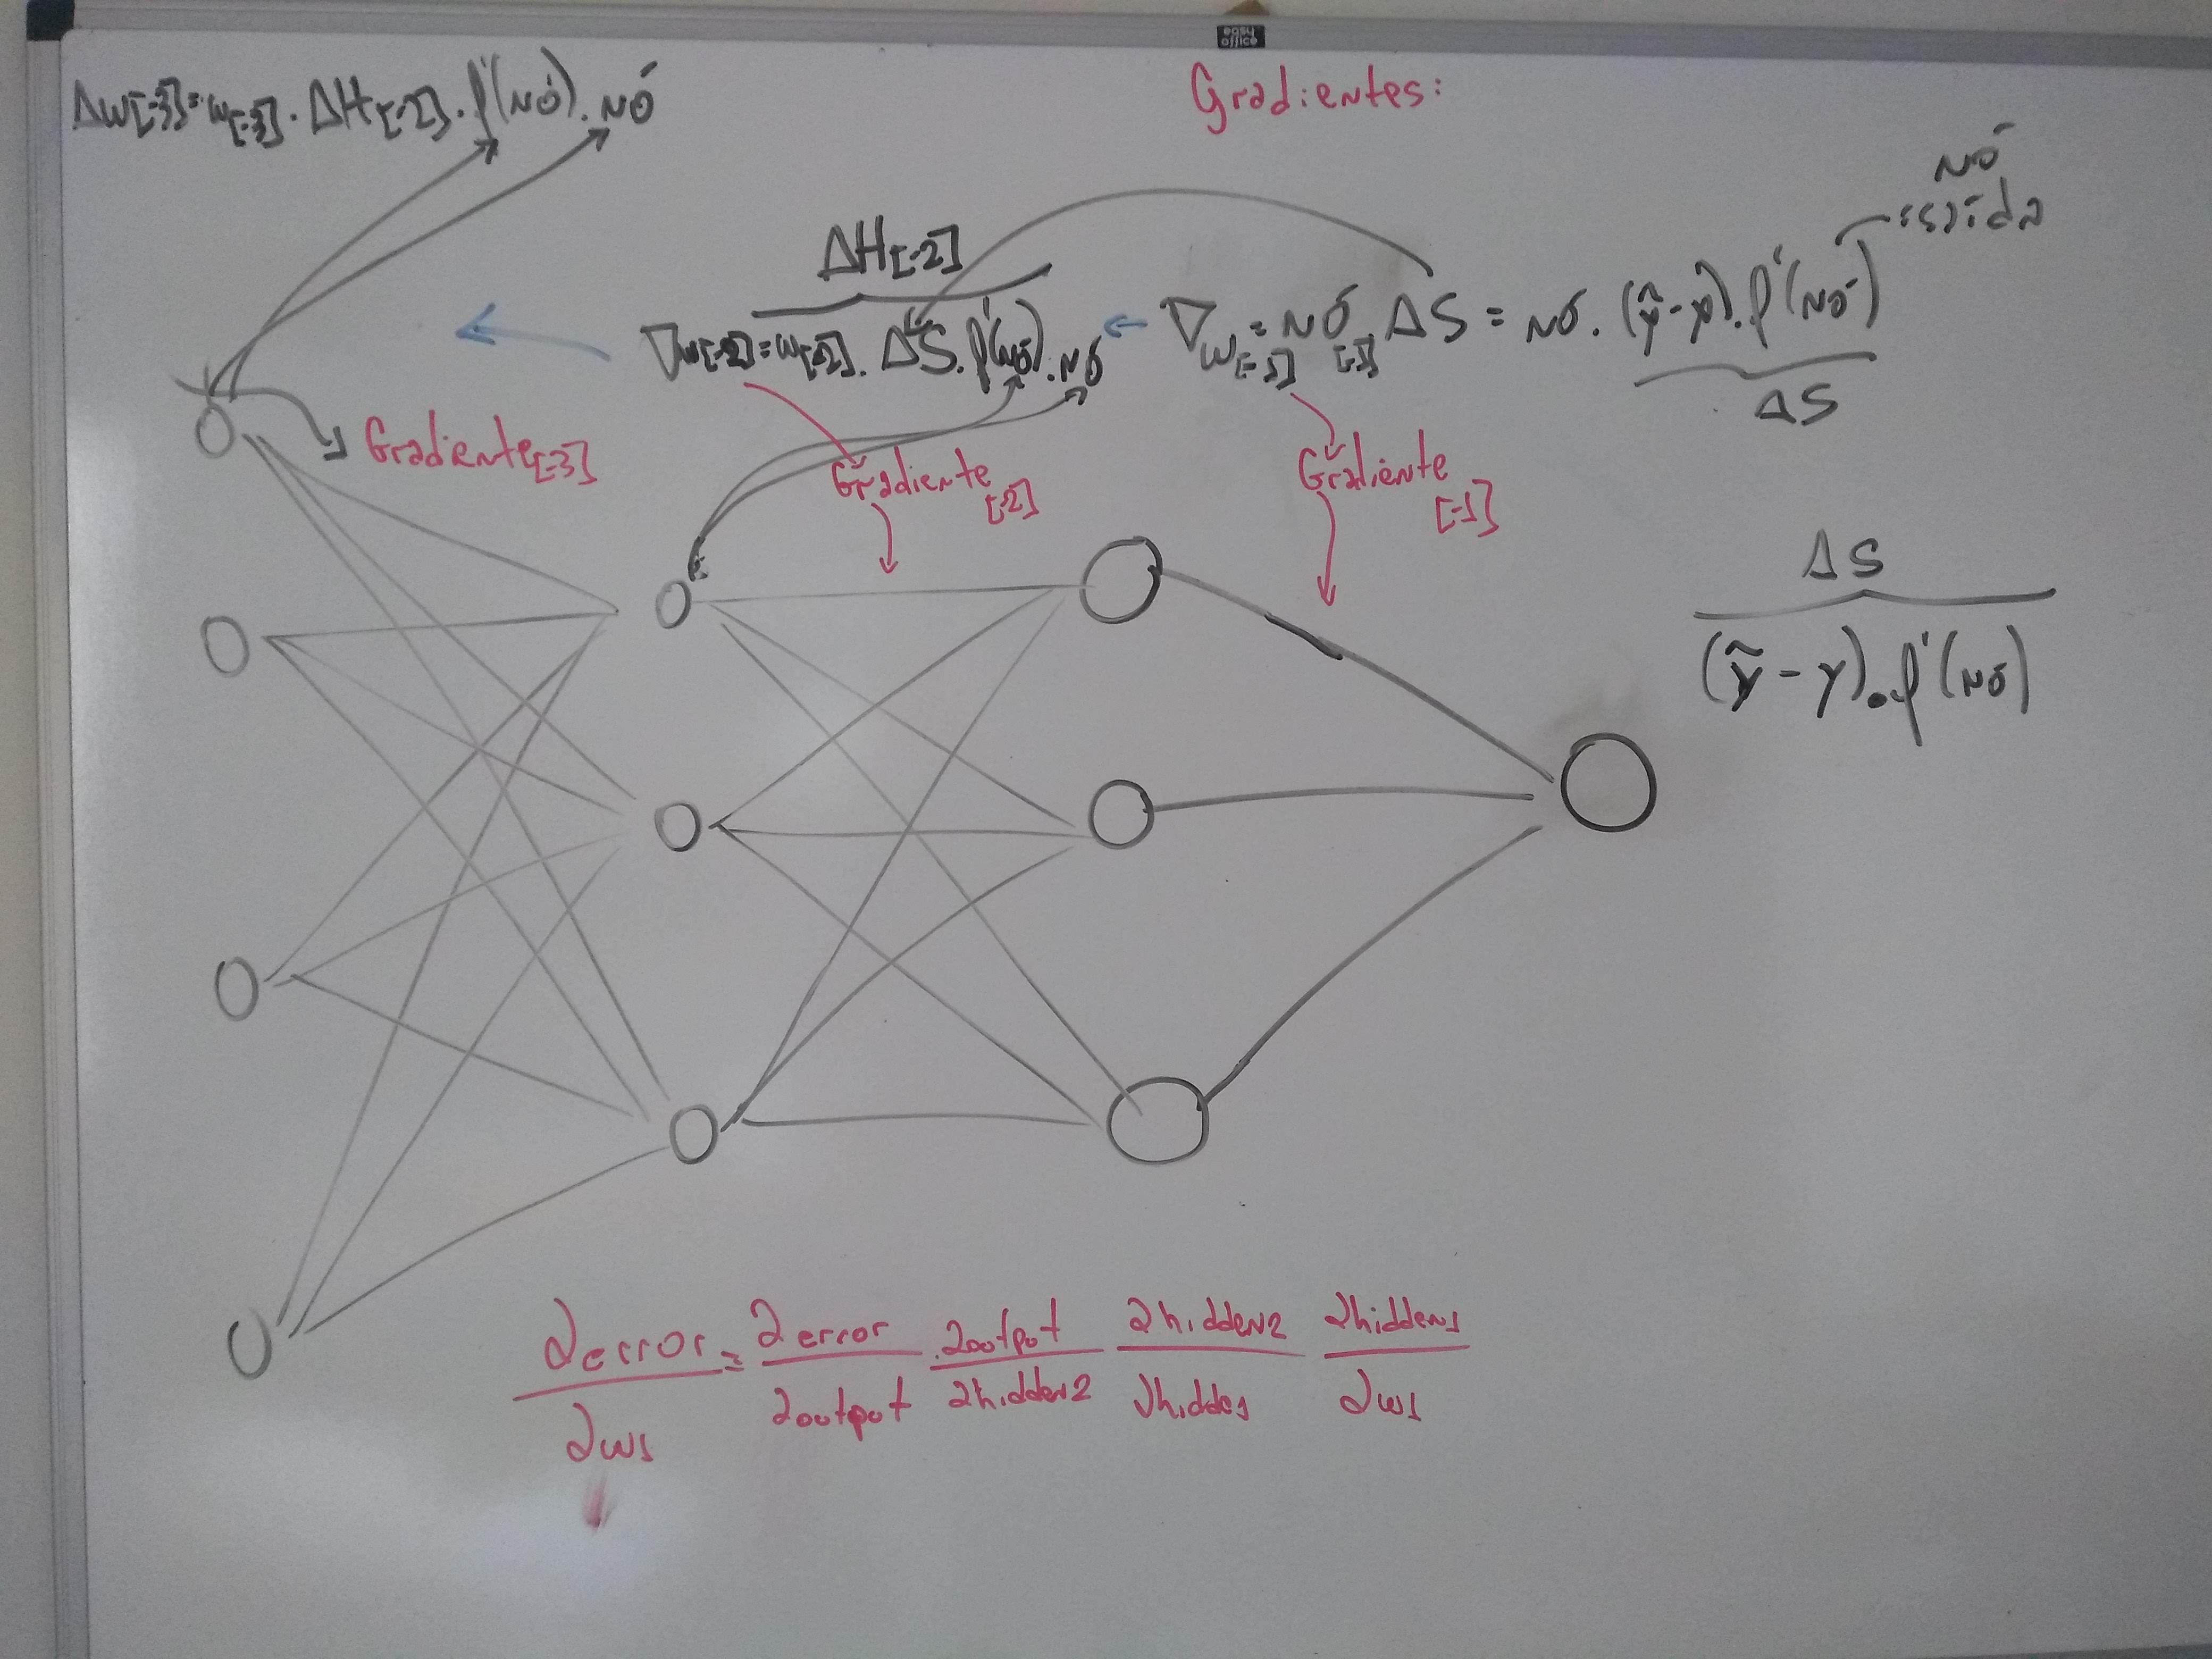 easy office
Gradientes:
Δw[-3]=w[-3].ΔH[-2].f'(nó).nó
nó
saída
ΔH[-2]
∇w[-2]=w[-2].ΔS.f'(nó).nó
∇w[-1]=nó[-1]ΔS=nó.(ỹ-y).f'(nó)
ΔS
Gradiente[-3]
Gradiente
[-2]
Gradiente
[-1]
ΔS
(ỹ-y).f'(nó)
∂error/∂w1=∂error/∂output.∂output/∂hidden2 ∂hidden2/∂hidde1 ∂hidden1/∂w1